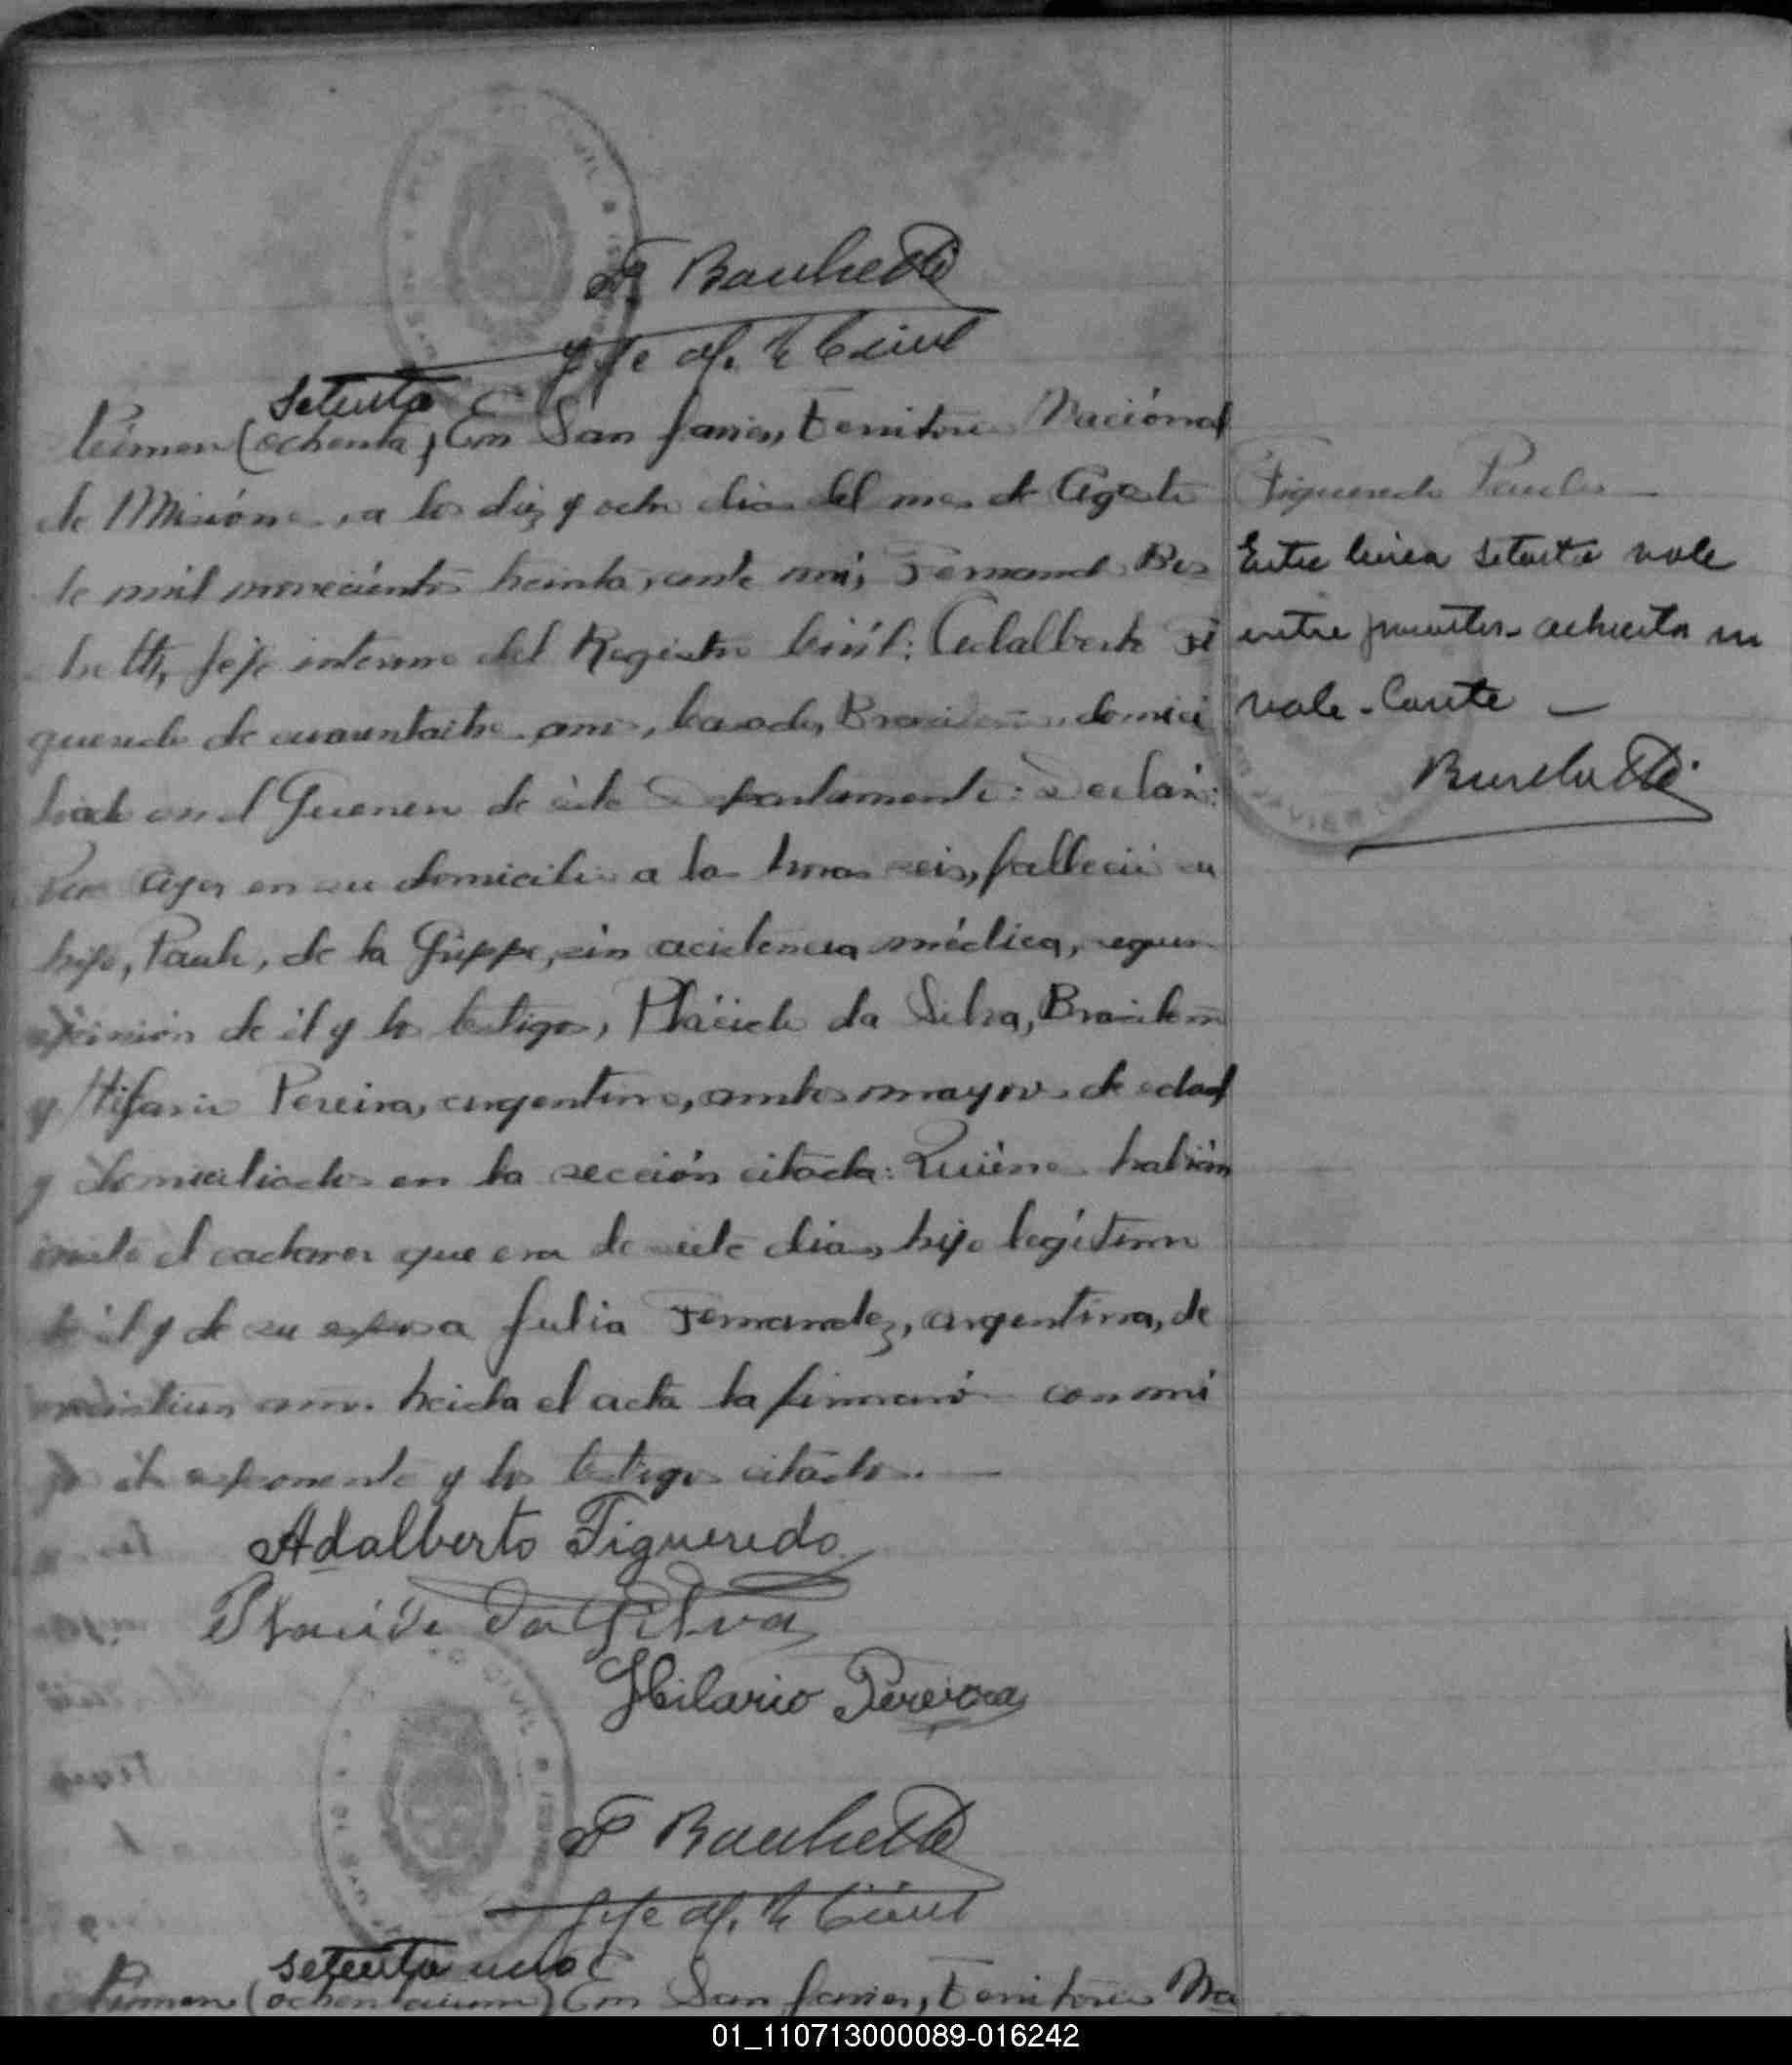 F Bauhetti
Jefe del R Civil
setenta
Número (ochenta) En San Javier, Territorio Nacional
de Misiones, a los diez y ocho dias del mes de Agosto
de mil novecientos treinta, ante mi, Fernando
Jefe interino del Registro Civil: Adalberto Fi
gueredo de cuarentaitres años, Casado, Brasileño, domici
liado en el Guerrero de éste Departamento: Declaró:
Que ayer en su domicilio a las horas seis, falleció su
hijo, Paulo, de la Grippe, sin acistencia médica, segun
opinión de él y los testigos, Plácido da Silva, Brasilero
y Hilario Pereira, argentino, ambos mayores de edad
y domiciliados en la sección citada: Quiénes habian
visto el cadaver que era de siete dias, hijo legítimo
de él y de su esposa Julia Fernandez, argentina, de
veintiun años. Leida el acta la firmaron con mi
go él exponente y los testigos citados.
Adalberto Figueredo
Placido Da Silva
Hilario Pereira
F Bauhetti
Jefe del R Civil
setenta uno
Número (ochentaiuno) En San Javier, Territorio Na
Figueredo Paulo
Entre linea setenta vale
entre parentesis ochenta no
vale. Conste
01_110713000089-016242